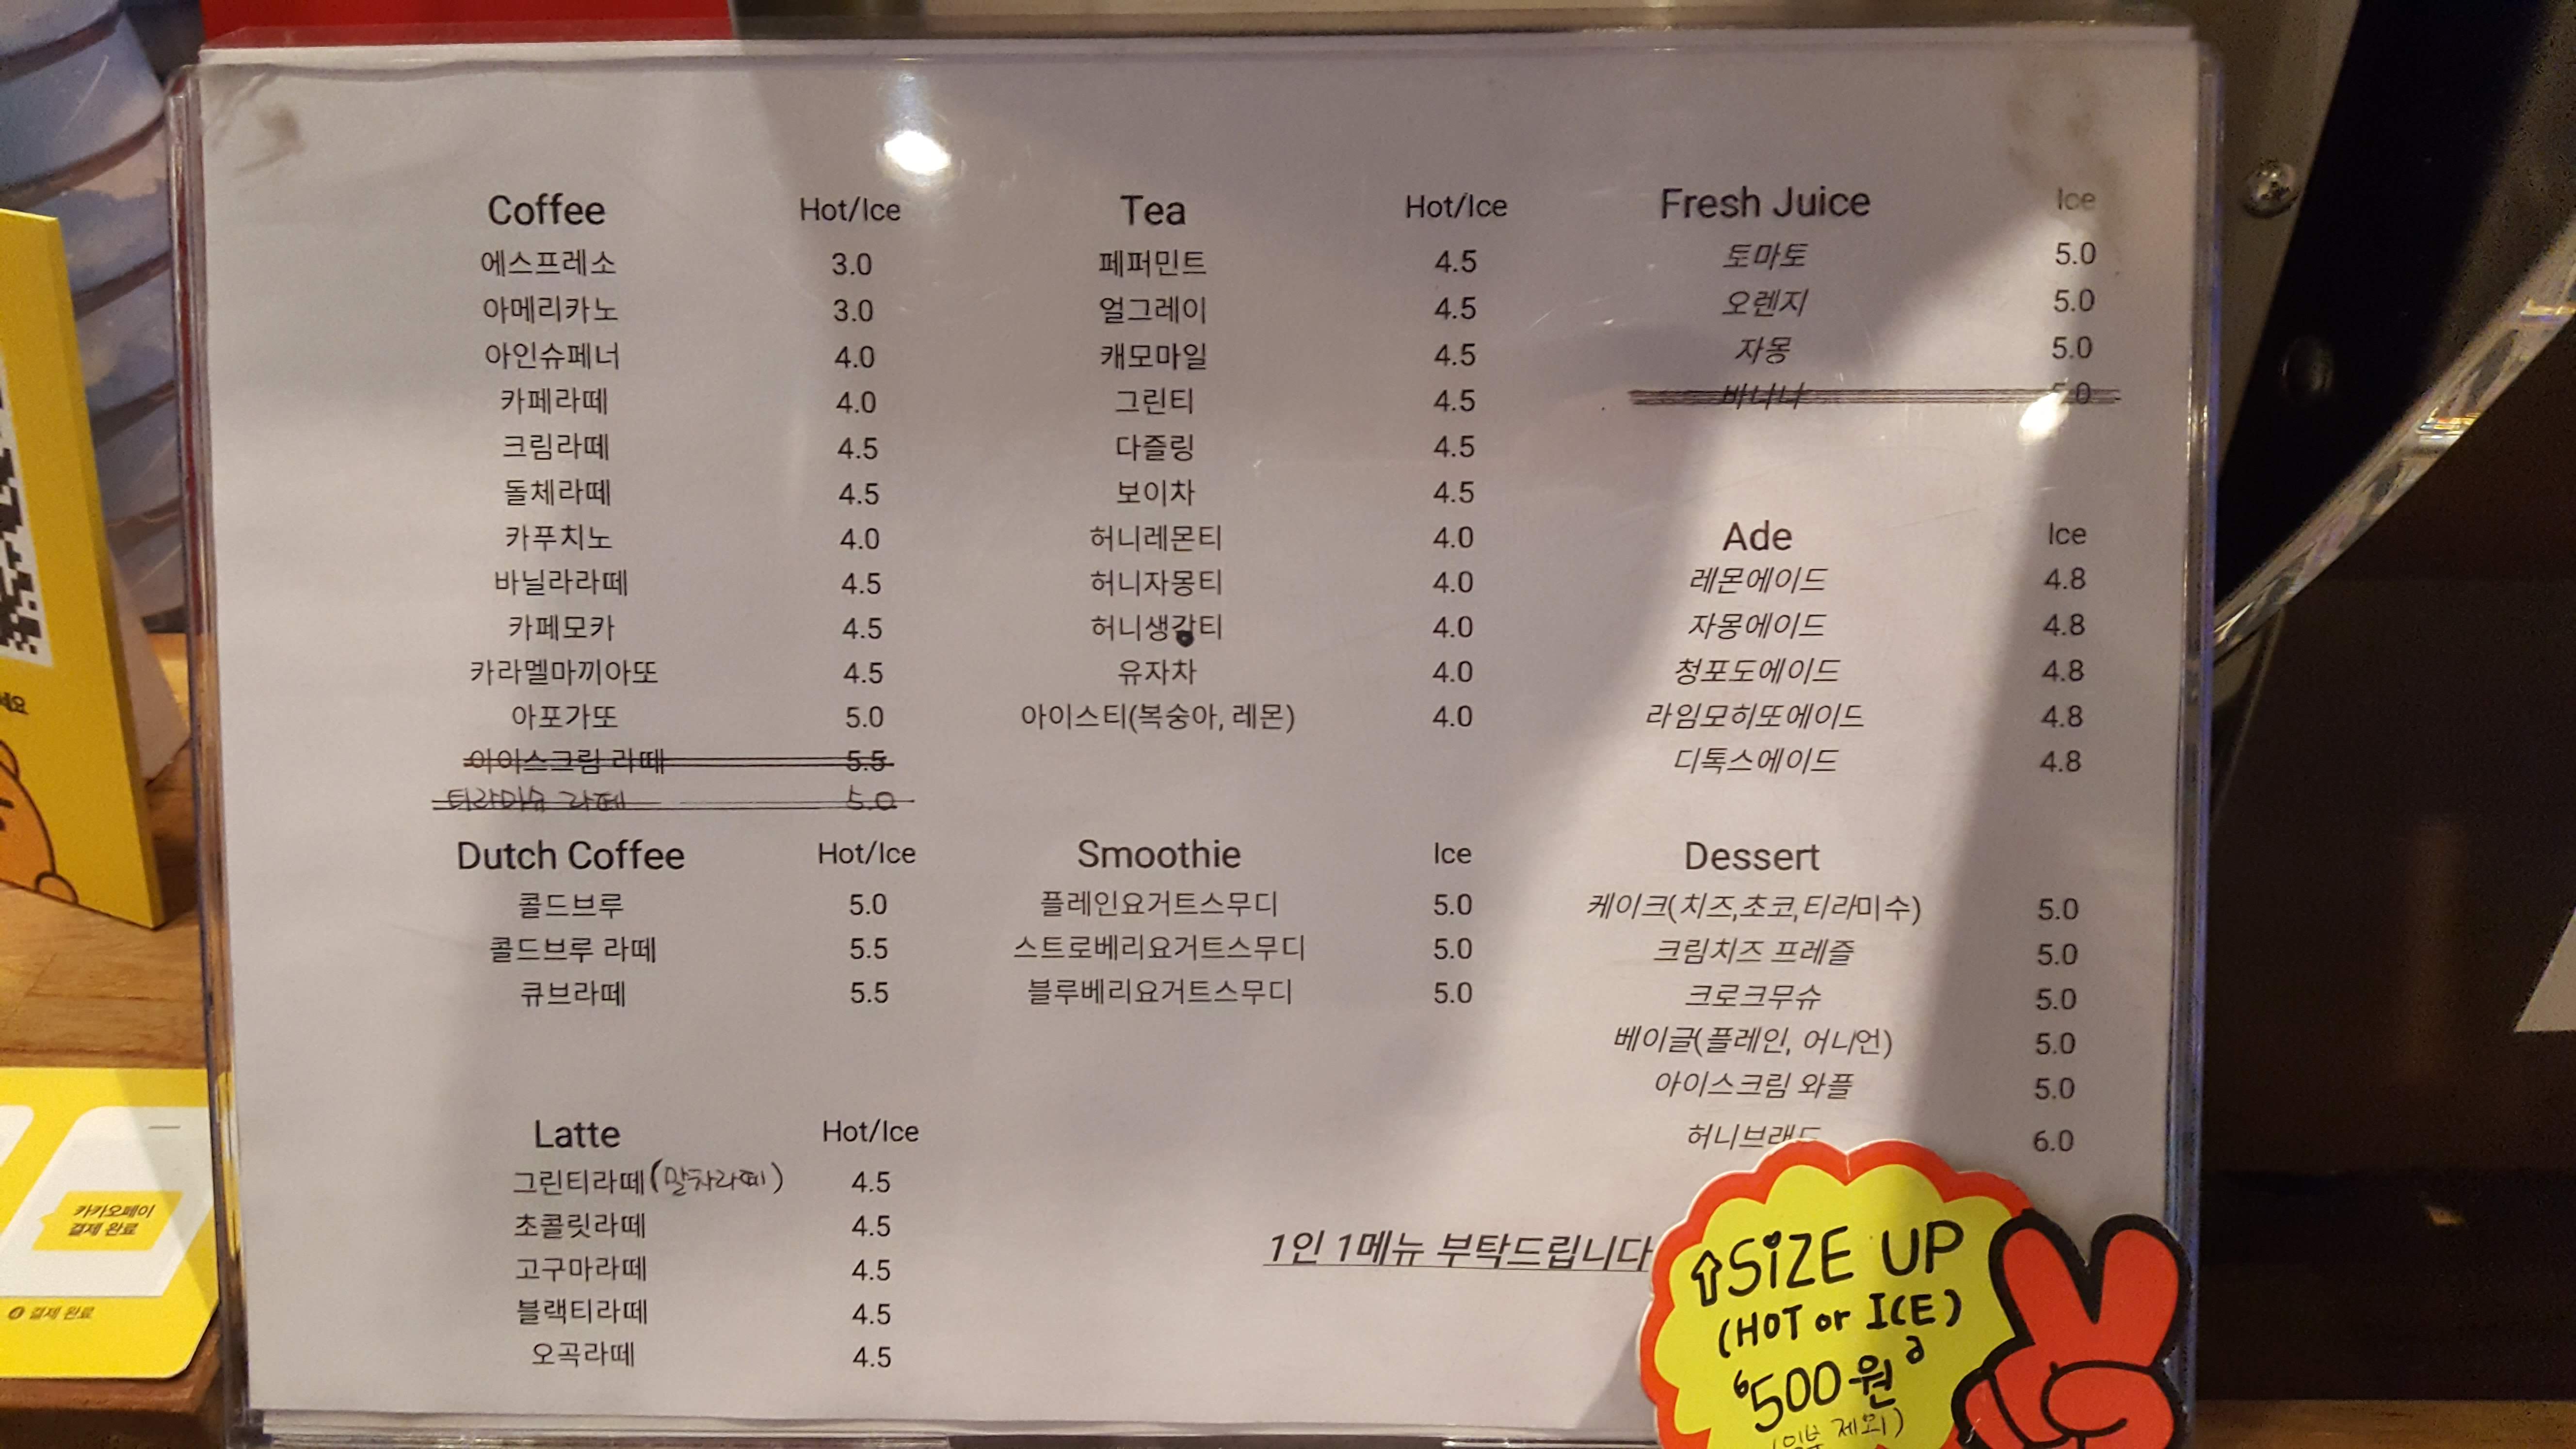 Coffee Hot/Ice
에스프레소 3.0
아메리카노 3.0
아인슈페너 4.0
카페라떼 4.0
크림라떼 4.5
돌체라떼 4.5
카푸치노 4.0
바닐라라떼 4.5
카페모카 4.5
카라멜마끼아또 4.5
아포가또 5.0
아이스크림 라떼 5.5
티라미슈 라떼 5.0
Dutch Coffee Hot/Ice
콜드브루 5.0
콜드브루 라떼 5.5
큐브라떼 5.5
Latte Hot/Ice
그린티라떼(말차라떼) 4.5
초콜릿라떼 4.5
고구마라떼 4.5
블랙티라떼 4.5
오곡라떼 4.5
Tea Hot/Ice
페퍼민트 4.5
얼그레이 4.5
캐모마일 4.5
그린티 4.5
다즐링 4.5
보이차 4.5
허니레몬티 4.0
허니자몽티 4.0
허니생강티 4.0
유자차 4.0
아이스티(복숭아, 레몬) 4.0
Smoothie Ice
플레인요거트스무디 5.0
스트로베리요거트스무디 5.0
블루베리요거트스무디 5.0
Fresh Juice Ice
토마토 5.0
오렌지 5.0
자몽 5.0
바나나 5.0
Ade Ice
레몬에이드 4.8
자몽에이드 4.8
청포도에이드 4.8
라임모히또에이드 4.8
디톡스에이드 4.8
Dessert
케이크(치즈,초코,티라미수) 5.0
크림치즈 프레즐 5.0
크로크무슈 5.0
베이글(플레인, 어니언) 5.0
아이스크림 와플 5.0
허니브래드 6.0
1인 1메뉴 부탁드립니다
⇧SiZE UP
(HOT or ICE)
500원
(일부 제외)
카카오페이
결제 완료
결제 완료